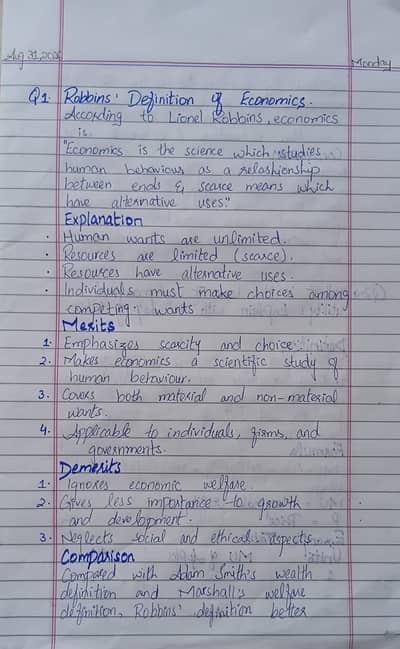 Aug 31, 202
Monday
Q1. Robbins' Definition of Economics.
According to Lionel Robbins, economics
is.
"Economics is the science which studies
human behaviour as a relashionship
between ends & scarce means which
have alternative uses."
Explanation
• Human wants are unlimited.
• Resources are limited (scarce).
• Resources have alternative uses.
• Individuals must make choices among
competing wants
Merits
1. Emphasizes scarcity and choice
2. Makes economics a scientific study of
human behaviour.
3. Covers both material and non-material
wants.
4. Applicable to individuals, firms, and
governments.
Demerits
1. Ignores economic welfare.
2. Gives less importance to growth
and development.
3. Neglects social and ethical aspects.
Comparison
Compared with Adam Smith's wealth
definition and Marshall's welfare
definition, Robbins' definition better